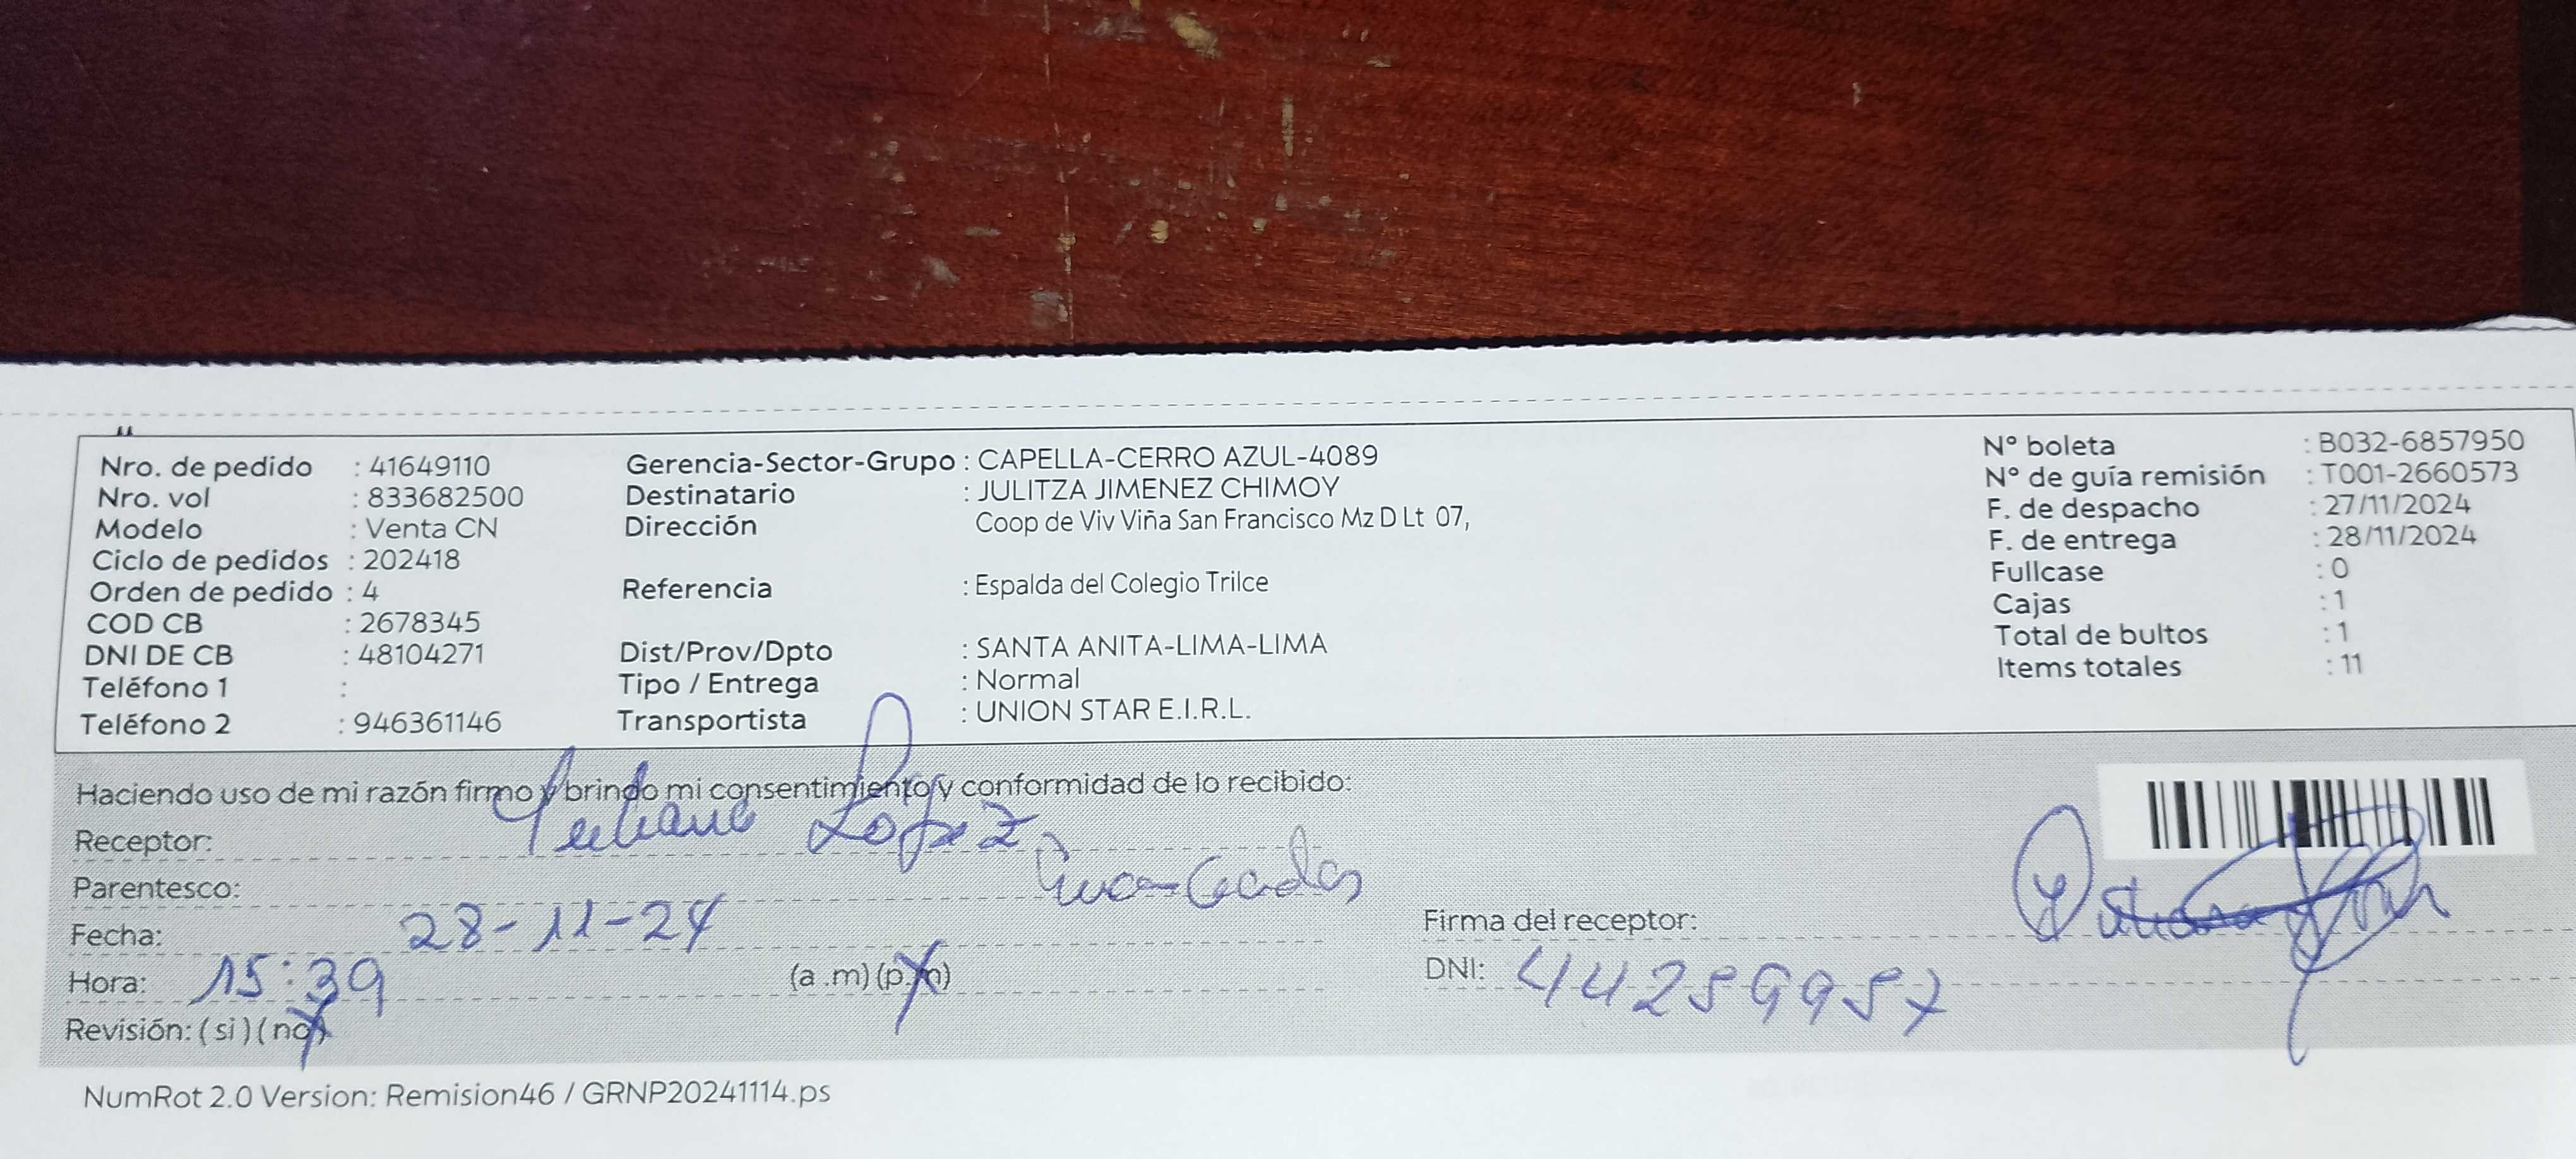 Nro. de pedido : 41649110
Nro. vol : 833682500
Modelo : Venta CN
Ciclo de pedidos : 202418
Orden de pedido : 4
COD CB : 2678345
DNI DE CB : 48104271
Teléfono 1 :
Teléfono 2 : 946361146
Gerencia-Sector-Grupo : CAPELLA-CERRO AZUL-4089
Destinatario : JULITZA JIMENEZ CHIMOY
Dirección Coop de Viv Viña San Francisco Mz D Lt 07,
Referencia : Espalda del Colegio Trilce
Dist/Prov/Dpto : SANTA ANITA-LIMA-LIMA
Tipo / Entrega : Normal
Transportista : UNION STAR E.I.R.L.
N° boleta : B032-6857950
N° de guía remisión : T001-2660573
F. de despacho : 27/11/2024
F. de entrega : 28/11/2024
Fullcase : 0
Cajas : 1
Total de bultos : 1
Items totales : 11
Haciendo uso de mi razón firmo y brindo mi consentimiento y conformidad de lo recibido:
Receptor: Lopez
Parentesco:
Fecha: 28-11-24
Hora: 15:39 (a.m) (p.m)
Revisión: (si) (no)
Firma del receptor:
DNI: 44259957
NumRot 2.0 Version: Remision46 / GRNP20241114.ps